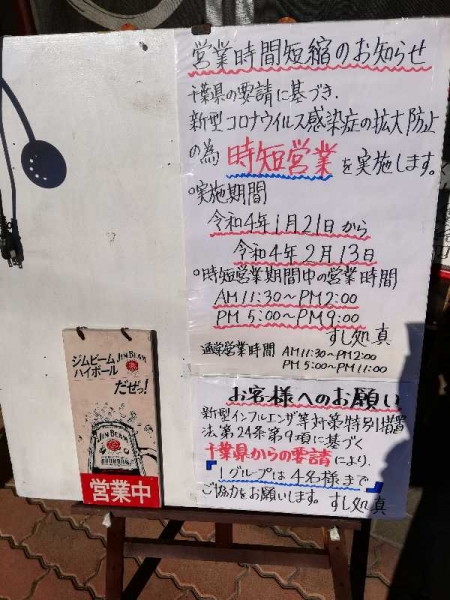 営業時間短縮のお知らせ
千葉県の要請に基づき、
新型コロナウイルス感染症の拡大防止
の為 時短営業を実施します。
○実施期間
令和4年1月21日から
令和4年2月13日
○時短営業期間中の営業時間
AM 11:30～PM 2:00
PM 5:00～PM 9:00
すし処 真
通常営業時間 AM11:30～PM2:00
PM 5:00～PM 11:00
お客様へのお願い
新型インフルエンザ等対策特別措置
法第24条第9項に基づく
千葉県からの要請により、
「1グループは4名様まで」
ご協力をお願いします。すし処 真
ジムビーム JIM BEAM
ハイボール
だぜっ!
JIM BEAM
BOURBON
営業中